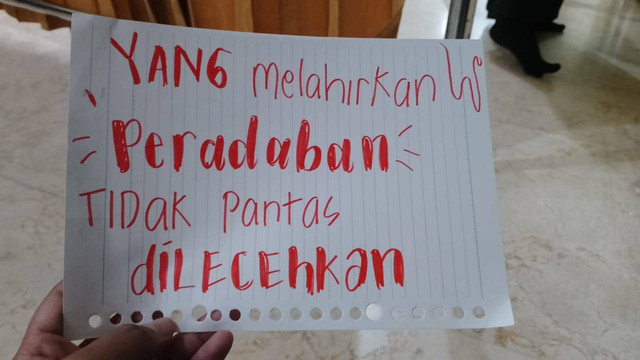 YANG melahirkan
Peradaban
TIDAK pantas
diLECEhKan